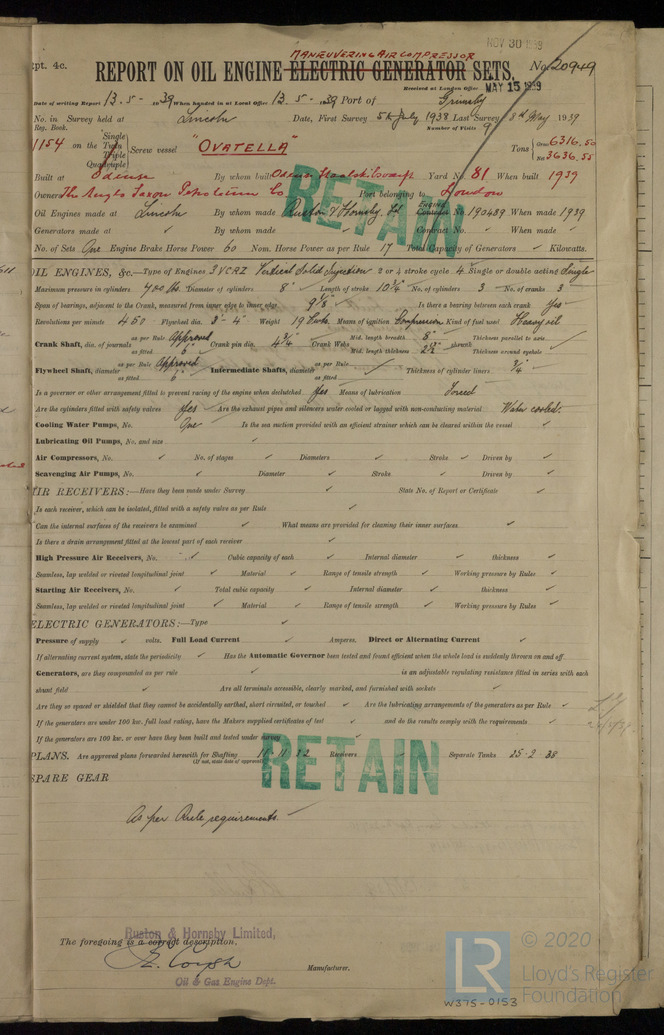 NOV 30 1939
MANŒUVERING AIR COMPRESSOR
Rpt. 4c. REPORT ON OIL ENGINE ELECTRIC GENERATOR SETS. No. 20949
Received at London Office MAY 15 1939
Date of writing Report 13.5- 1939 When handed in at Local Office 13.5- 1939 Port of Grimsby
No. in Survey held at Lincoln Date, First Survey 5th July 1938 Last Survey 8th May 1939
Reg. Book. Number of Visits 9
1154 on the Single Twin Triple Quadruple Screw vessel "OVATELLA" Tons Gross 6316.50 Net 3636.55
Built at Odense By whom built Odense Staalskibsværft Yard No. 81 When built 1939
Owners The Anglo Saxon Petroleum Co Port belonging to London
Oil Engines made at Lincoln By whom made Ruston & Hornsby Ld Engine Contract No. 190489 When made 1939
Generators made at ✓ By whom made ✓ Contract No. ✓ When made ✓
No. of Sets One Engine Brake Horse Power 60 Nom. Horse Power as per Rule 17 Total Capacity of Generators ✓ Kilowatts.
RETAIN
OIL ENGINES, &c.—Type of Engines 3VCRZ Vertical Solid Injection 2 or 4 stroke cycle 4 Single or double acting Single
Maximum pressure in cylinders 700 lbs Diameter of cylinders 8" Length of stroke 10 3/4" No. of cylinders 3 No. of cranks 3
Span of bearings, adjacent to the Crank, measured from inner edge to inner edge 9 1/8" Is there a bearing between each crank Yes
Revolutions per minute 450 Flywheel dia. 3'-4" Weight 19 Cwts Means of ignition Compression Kind of fuel used Heavy oil
Crank Shaft, dia. of journals as per Rule Approved as fitted 5" Crank pin dia. 4 3/4" Crank Webs Mid. length breadth 8" Mid. length thickness 2 1/2" shrunk Thickness parallel to axis ✓ Thickness around eyehole ✓
Flywheel Shaft, diameter as per Rule Approved as fitted 6" Intermediate Shafts, diameter as per Rule ✓ as fitted ✓ Thickness of cylinder liners 3/4"
Is a governor or other arrangement fitted to prevent racing of the engine when declutched Yes Means of lubrication Forced
Are the cylinders fitted with safety valves Yes Are the exhaust pipes and silencers water cooled or lagged with non-conducting material Water cooled.
Cooling Water Pumps, No. One Is the sea suction provided with an efficient strainer which can be cleared within the vessel ✓
Lubricating Oil Pumps, No. and size ✓
Air Compressors, No. ✓ No. of stages ✓ Diameters ✓ Stroke ✓ Driven by ✓
Scavenging Air Pumps, No. ✓ Diameter ✓ Stroke ✓ Driven by ✓
AIR RECEIVERS:—Have they been made under Survey ✓ State No. of Report or Certificate ✓
Is each receiver, which can be isolated, fitted with a safety valve as per Rule ✓
Can the internal surfaces of the receivers be examined ✓ What means are provided for cleaning their inner surfaces ✓
Is there a drain arrangement fitted at the lowest part of each receiver ✓
High Pressure Air Receivers, No. ✓ Cubic capacity of each ✓ Internal diameter ✓ thickness ✓
Seamless, lap welded or riveted longitudinal joint ✓ Material ✓ Range of tensile strength ✓ Working pressure by Rules ✓
Starting Air Receivers, No. ✓ Total cubic capacity ✓ Internal diameter ✓ thickness ✓
Seamless, lap welded or riveted longitudinal joint ✓ Material ✓ Range of tensile strength ✓ Working pressure by Rules ✓
ELECTRIC GENERATORS:—Type ✓
Pressure of supply ✓ volts. Full Load Current ✓ Amperes. Direct or Alternating Current ✓
If alternating current system, state the periodicity ✓ Has the Automatic Governor been tested and found efficient when the whole load is suddenly thrown on and off
Generators, are they compounded as per rule ✓ is an adjustable regulating resistance fitted in series with each
shunt field ✓ Are all terminals accessible, clearly marked, and furnished with sockets ✓
Are they so spaced or shielded that they cannot be accidentally earthed, short circuited, or touched ✓ Are the lubricating arrangements of the generators as per Rule ✓
If the generators are under 100 kw. full load rating, have the Makers supplied certificates of test ✓ and do the results comply with the requirements ✓
If the generators are 100 kw. or over have they been built and tested under survey ✓
PLANS. Are approved plans forwarded herewith for Shafting 11.11.32 Receivers Separate Tanks 25-2-38
(If not, state date of approval)
RETAIN
SPARE GEAR
As per Rule requirements.
Ruston & Hornsby Limited,
The foregoing is a correct description.
Manufacturer.
Oil & Gas Engine Dept.
LR © 2020
Lloyd's Register
Foundation
W375-0153